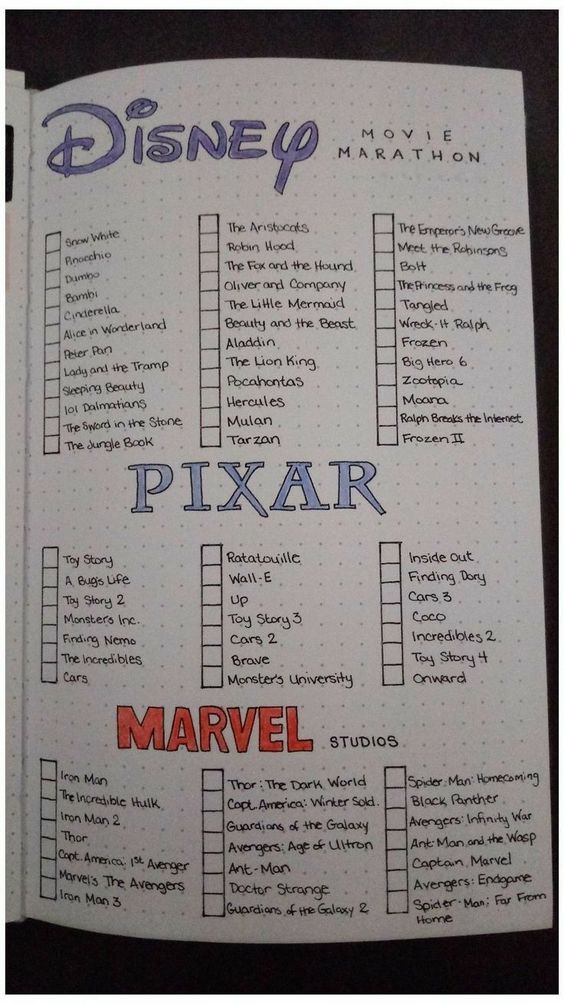 Disney
MOVIE
MARATHON
Snow White
Pinocchio
Dumbo
Bambi
Cinderella
Alice in Wonderland
Peter Pan
Lady and the Tramp
Sleeping Beauty
101 Dalmatians
The Sword in the Stone
The Jungle Book
The Aristocats
Robin Hood
The Fox and the Hound
Oliver and Company
The Little Mermaid
Beauty and the Beast
Aladdin
The Lion King
Pocahontas
Hercules
Mulan
Tarzan
The Emperor's New Groove
Meet the Robinsons
Bolt
The Princess and the Frog
Tangled
Wreck-It Ralph
Frozen
Big Hero 6
Zootopia
Moana
Ralph Breaks the Internet
Frozen II
PIXAR
Toy Story
A Bug's Life
Toy Story 2
Monsters Inc.
Finding Nemo
The Incredibles
Cars
Ratatouille
Wall-E
Up
Toy Story 3
Cars 2
Brave
Monster's University
Inside Out
Finding Dory
Cars 3
Coco
Incredibles 2
Toy Story 4
Onward
MARVEL STUDIOS
Iron Man
The Incredible Hulk
Iron Man 2
Thor
Capt. America: 1st Avenger
Marvel's The Avengers
Iron Man 3
Thor: The Dark World
Capt. America: Winter Sold.
Guardians of the Galaxy
Avengers: Age of Ultron
Ant-Man
Doctor Strange
Guardians of the Galaxy 2
Spider-Man: Homecoming
Black Panther
Avengers: Infinity War
Ant-Man and the Wasp
Captain Marvel
Avengers: Endgame
Spider-Man: Far From
Home